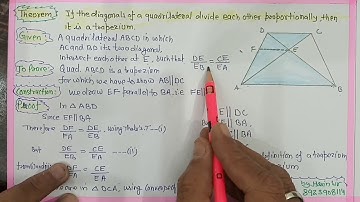 Theorem: If the diagonals of a quadrilateral divide each other proportionally, then
it is a trapezium.
Given: A quadrilateral ABCD in which
AC and BD its two diagonal
Intersect each other at E, such that DE/EB = CE/EA
To Prove: Quad. ABCD is a trapezium
for which we have to show AB||DC
Construction: We draw EF parallel to BA i.e. FE||
Proof: In △ABD
Since EF||BA
Therefore DF/FA = DE/EB, using Thale's T ----(i)
But DE/EB = CE/EA ----(ii)
DF/FA = CE/EA
in △DCA, using
|| DC
BA,
|| DC
definition of a trapezium
trapezium
D
C
F
E
A
B
8923908114